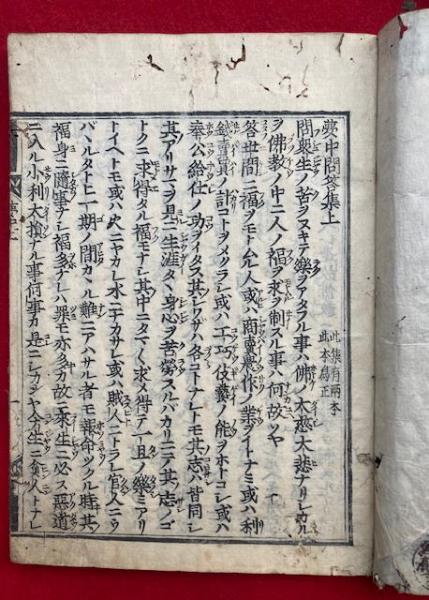 夢中問答集上
此集有兩本
此本爲正
問衆生ノ苦ヲヌキテ樂ヲアタフル事ハ佛ノ大慈大悲ナリ
ヲ佛教ノ中ニ人ノ福ヲ求ヲ制スル事ハ何故ソヤ
答世間ニ福ヲモトムル人或ハ商賣農作ノ業ヲイトナミ或ハ利
錢賣買ノ計コトヲメクラシ或ハ工巧伎藝ノ能ヲホトコシ或ハ
奉公給仕ノ功ヲイタス其シワサハ各コトナレトモ其志ハ皆同シ
其アリサマヲ見ニ生涯タヽ身心ヲ苦勞スルバカリニテ其志ノゴ
トクニ求得タル福モナシ其中ニタマ〱求得テ一旦ノ樂ミアリ
トイヘトモ或ハ火ニヤカレ水ニナカサレ或ハ賊人ニトラレ官人ニウ
バヽルタトヒ一期ノ間カヽル難ニアハサル者モ報命ツクル時其
福身ニ隨事ナシ福多ケレハ罪モ亦多カ故ニ來生ニ必ス惡道
ニ入ル小利大損ナル事何事カ是ニシカンヤ今生ニ貧人トナレ